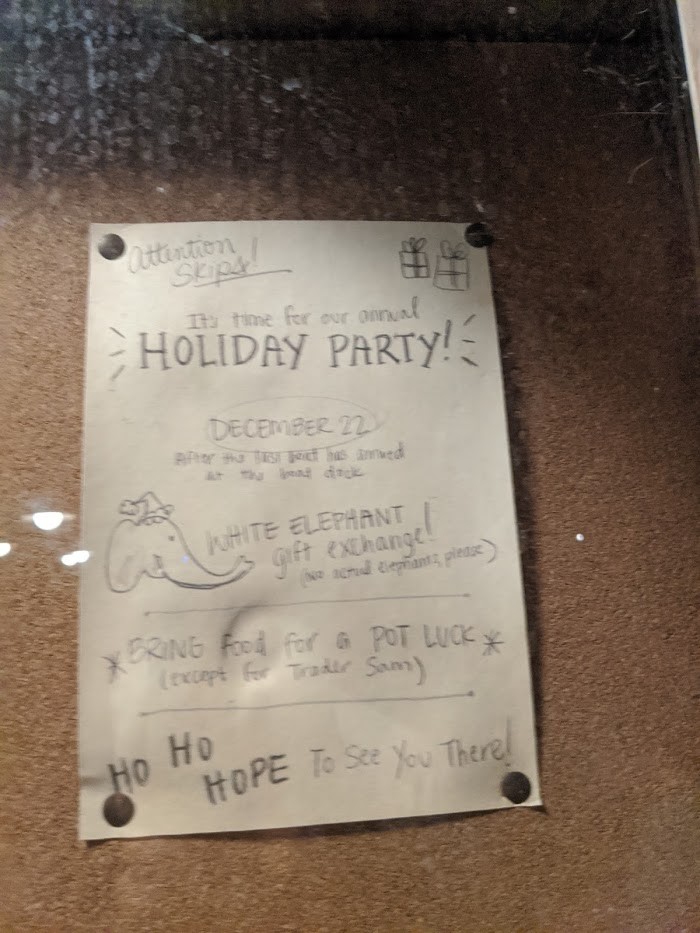 Attention
Skips!
It's time for our annual
HOLIDAY PARTY!
DECEMBER 22
After the last boat has arrived
at the boat dock
WHITE ELEPHANT
gift exchange!
(no actual elephants, please)
*BRING food for a POT LUCK*
(except for Trader Sam)
HO HO
HOPE To See You There!